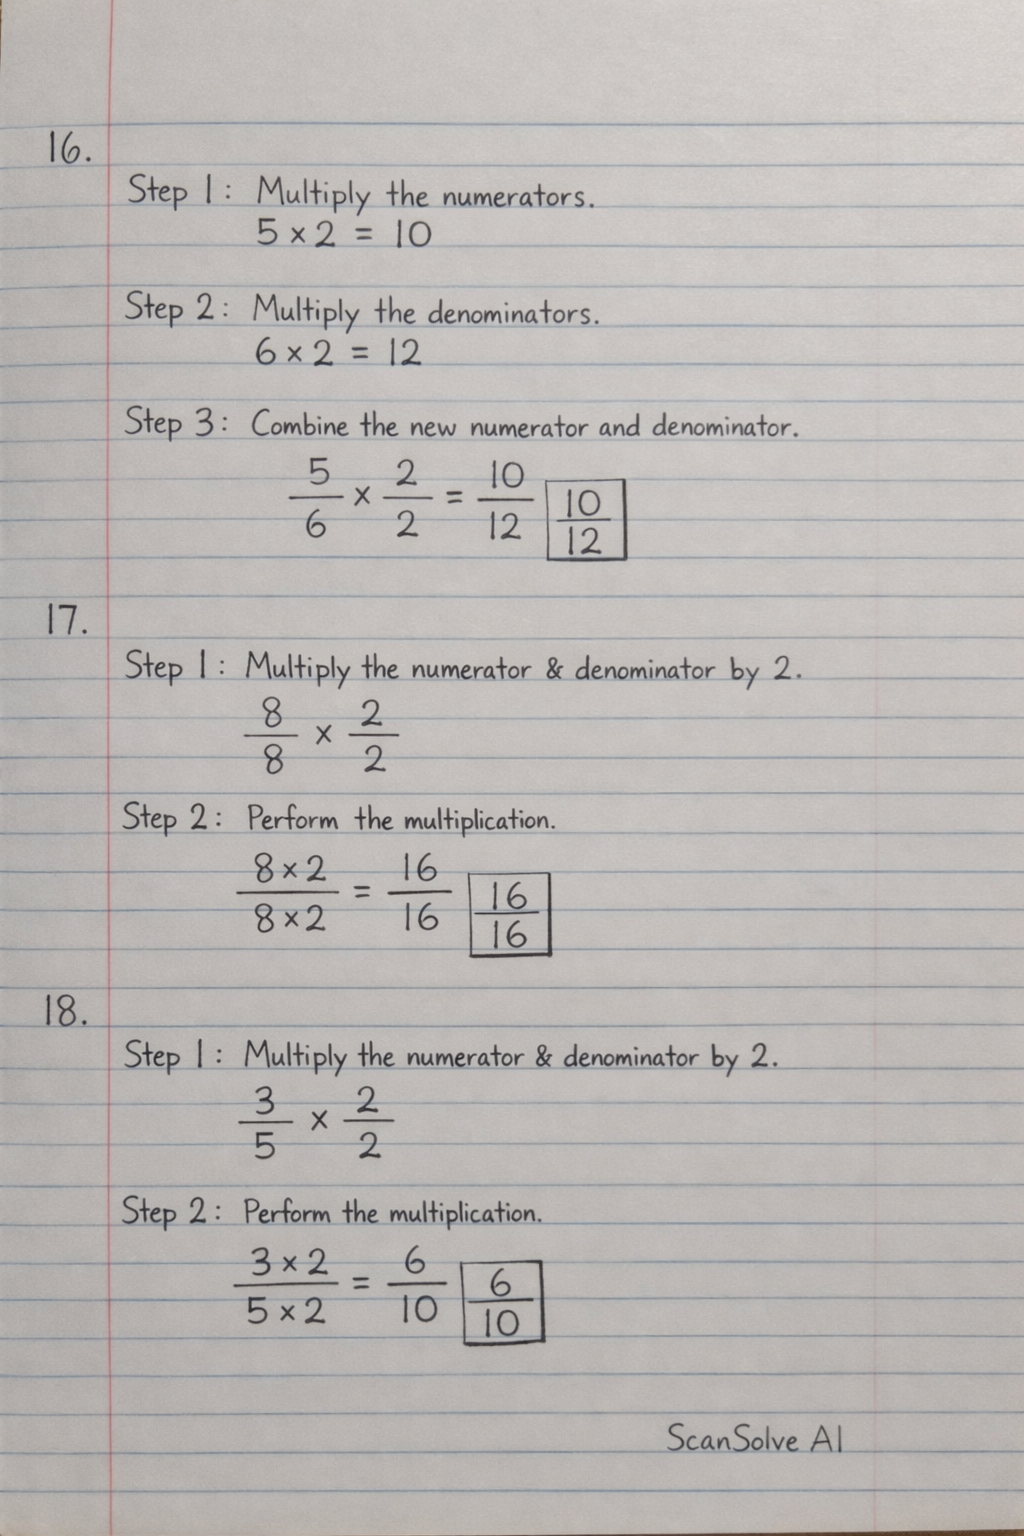 16.
Step 1: Multiply the numerators.
5 × 2 = 10
Step 2: Multiply the denominators.
6 × 2 = 12
Step 3: Combine the new numerator and denominator.
5/6 × 2/2 = 10/12 10/12
17.
Step 1: Multiply the numerator & denominator by 2.
8/8 × 2/2
Step 2: Perform the multiplication.
8 × 2/8 × 2 = 16/16 16/16
18.
Step 1: Multiply the numerator & denominator by 2.
3/5 × 2/2
Step 2: Perform the multiplication.
3 × 2/5 × 2 = 6/10 6/10
ScanSolve AI